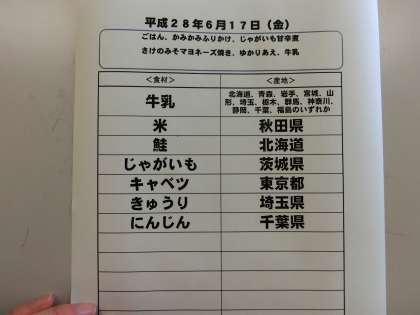 平成２８年６月１７日（金）
ごはん、かみかみふりかけ、じゃがいも甘辛煮
さけのみそマヨネーズ焼き、ゆかりあえ、牛乳
＜食材＞ ＜産地＞
牛乳 北海道、青森、岩手、宮城、山
形、埼玉、栃木、群馬、神奈川、
静岡、千葉、福島のいずれか
米 秋田県
鮭 北海道
じゃがいも 茨城県
キャベツ 東京都
きゅうり 埼玉県
にんじん 千葉県